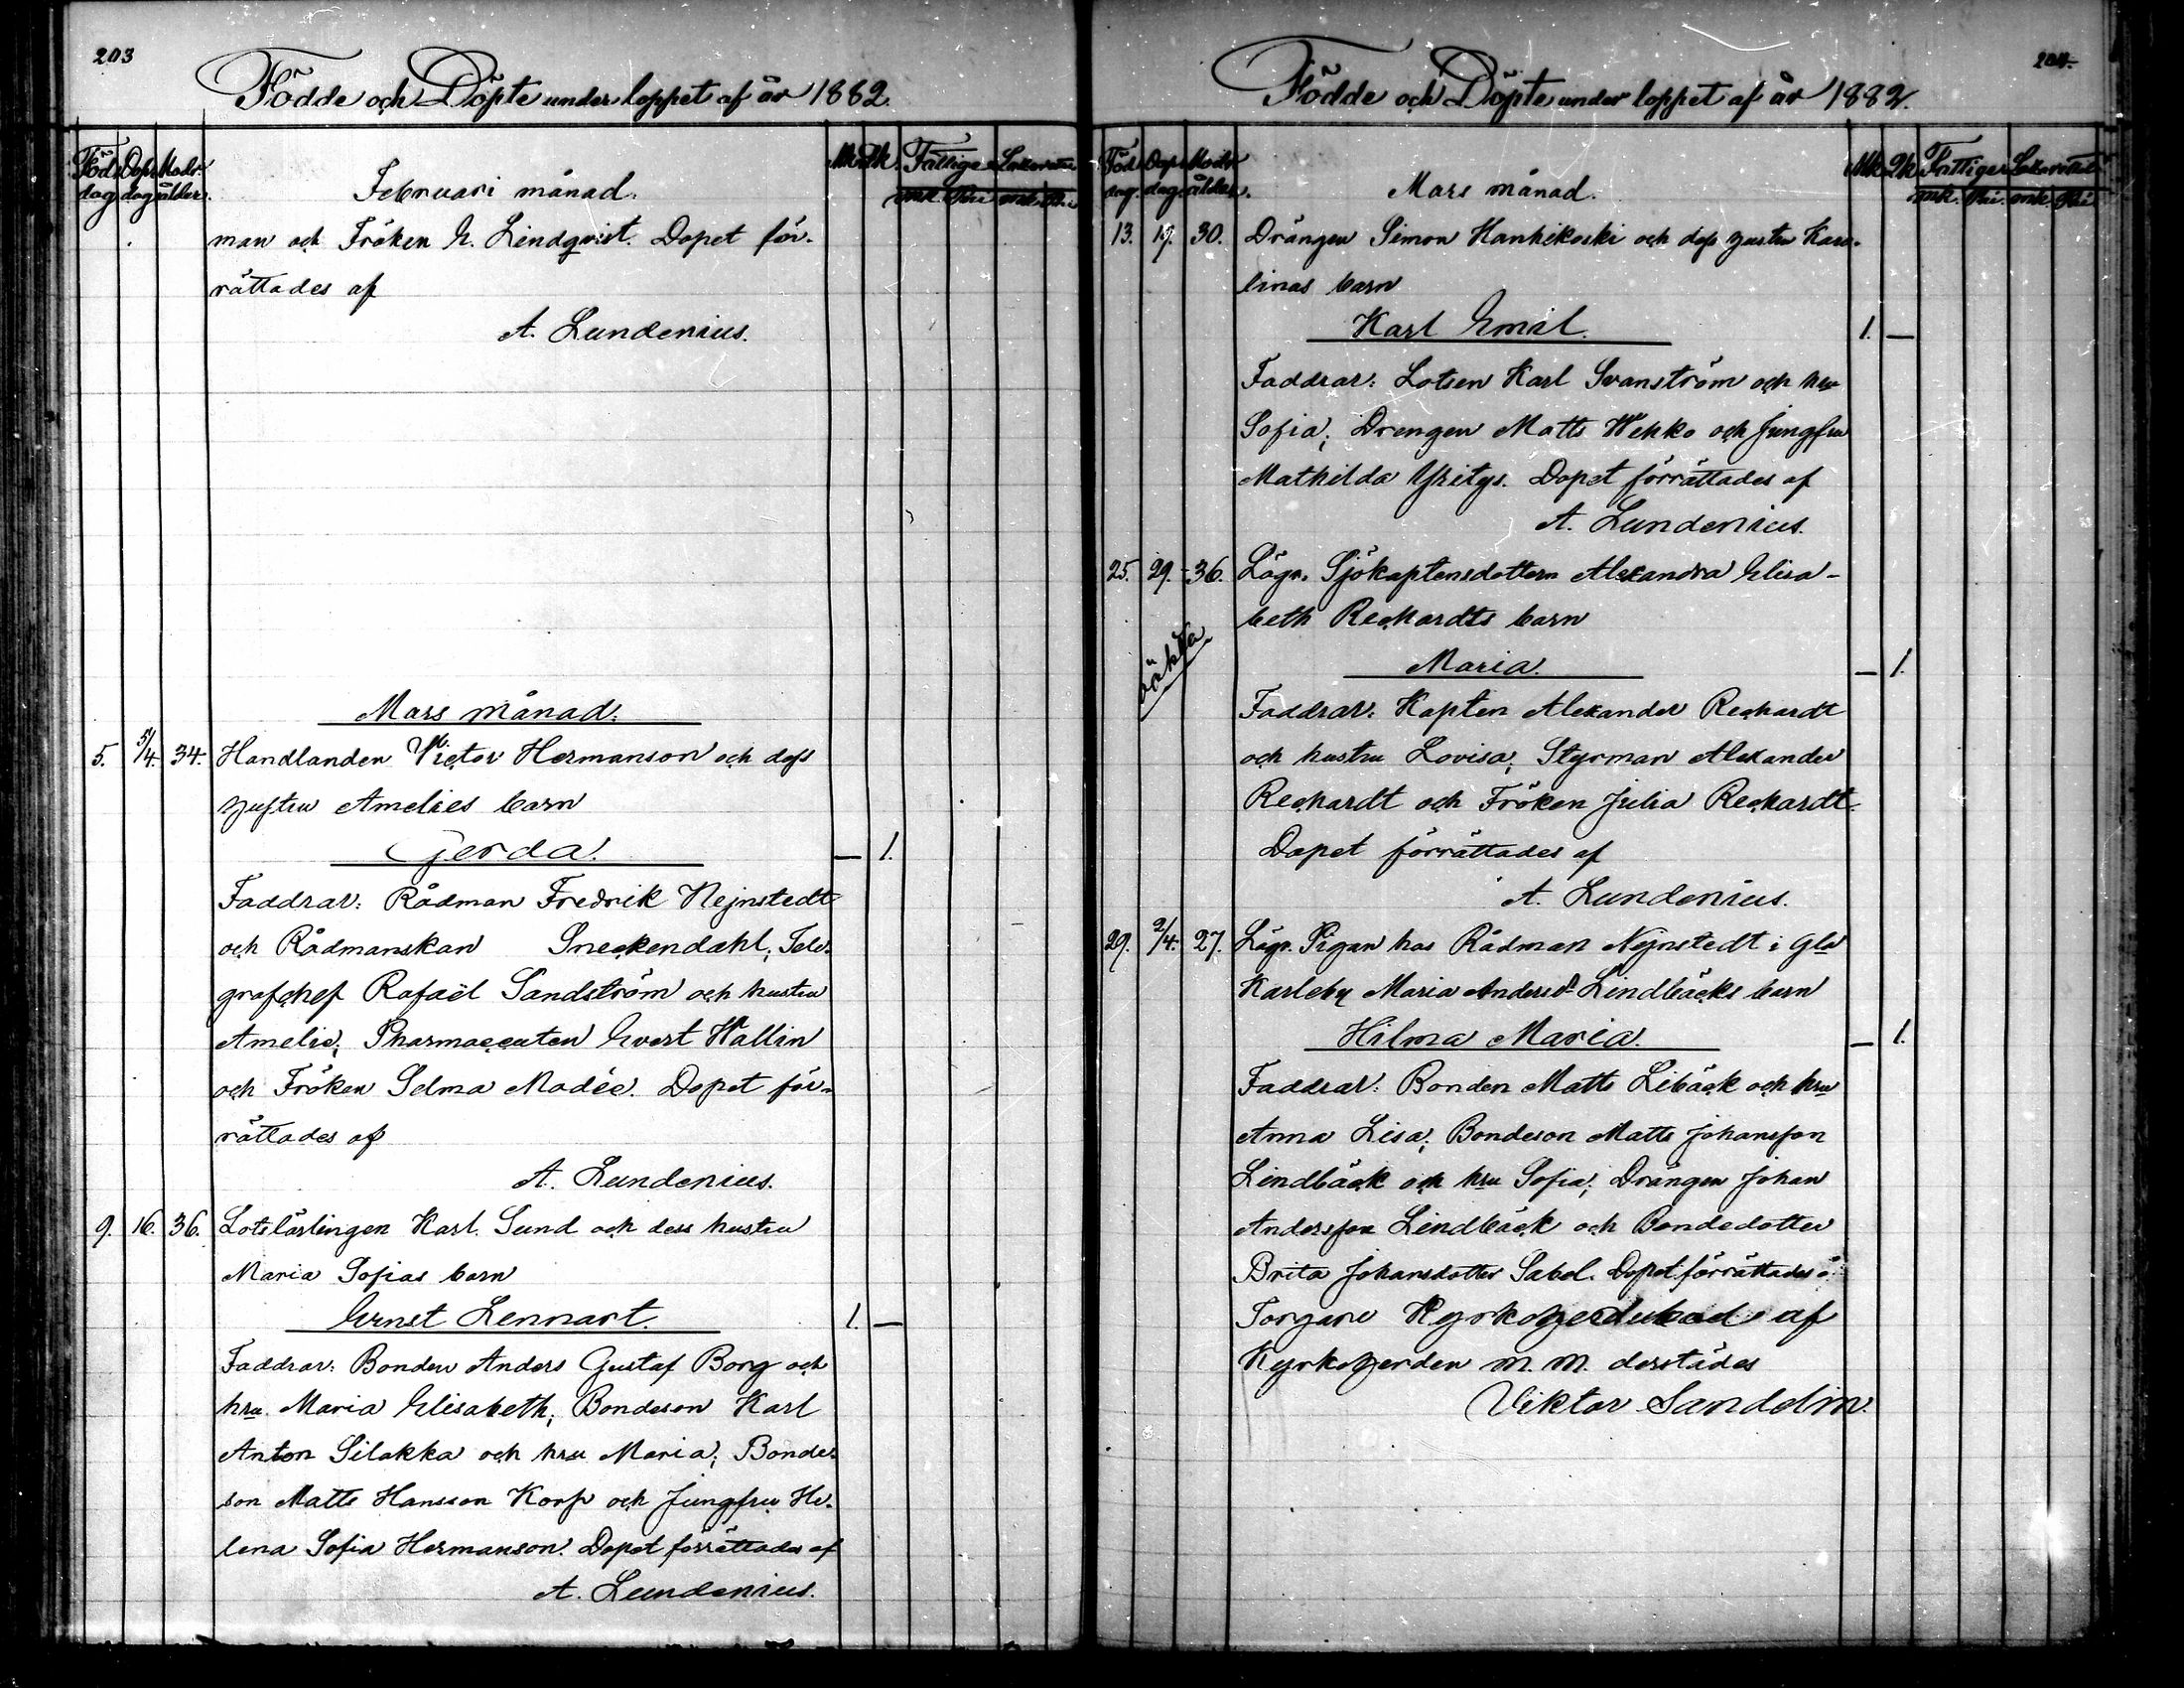 203
Födde och Döpte under loppet af år 1882.
Föd. dag Dop. dag Modr. ålder. Februari månad. Mk. Qk. Fattiga mk. Sakoratrl mk.
man och Fröken E. Lindqvist. Dopet för-
rättades af
A. Lundenius.
Mars månad.
5. 5/4. 34. Handlanden Victor Hermanson och dess
hustru Amelies barn
Gerda. — 1.
Faddrar: Rådman Fredrik Nejnstedt
och Rådmanskan Sneckendahl; Tele-
grafchef Rafaël Sandström och hustru
Amelie; Pharmaceuten Evert Wallin
och Fröken Selma Modée. Dopet för-
rättades af
A. Lundenius.
9. 16. 36. Lotslärlingen Karl Sund och dess hustru
Maria Sofias barn
Ernst Lennart. 1. —
Faddrar: Bonden Anders Gustaf Borg och
hru Maria Elisabeth; Bondeson Karl
Anton Silakka och hru Maria; Bonde-
son Matts Hansson Korp och Jungfru He-
lena Sofia Hermanson. Dopet förrättades af
A. Lundenius.
204.
Födde och Döpte under loppet af år 1882.
Föd. dag. Dop. dag. Modr. ålder. Mars månad. Mk. Qk. Fattiga mk. mk.
13. 19. 30. Drängen Simon Hanhikoski och dess hustru Karo-
linas barn
Karl Emil. 1. —
Faddrar: Lotsen Karl Svanström och hru
Sofia; Drengen Matts Wehko och Jungfru
Mathilda Yritys. Dopet förrättades af
A. Lundenius.
25. 29. 36. Lägr. Sjökaptensdottern Alexandra Elisa-
beth Rechardts barn
oäkta
Maria. — 1.
Faddrar: Kapten Alexander Rechardt
och hustru Lovisa; Styrman Alexander
Rechardt och Fröken Julia Rechardt.
Dopet förrättades af
A. Lundenius.
29. 2/4. 27. Lägr. Pigan hos Rådman Nejnstedt i Gla
Karleby Maria Andersdr Lindbäcks barn
Hilma Maria. — 1.
Faddrar: Bonden Matts Libäck och hru
Anna Lisa; Bondeson Matts Johansson
Lindbäck och hru Sofia; Drängen Johan
Andersson Lindbäck och Bondedotter
Brita Johansdotter Sabel. Dopet förrättades i
Torgare Kyrkoherdebod af
Kyrkoherden m. m. derstädes
Viktor Sandelin.